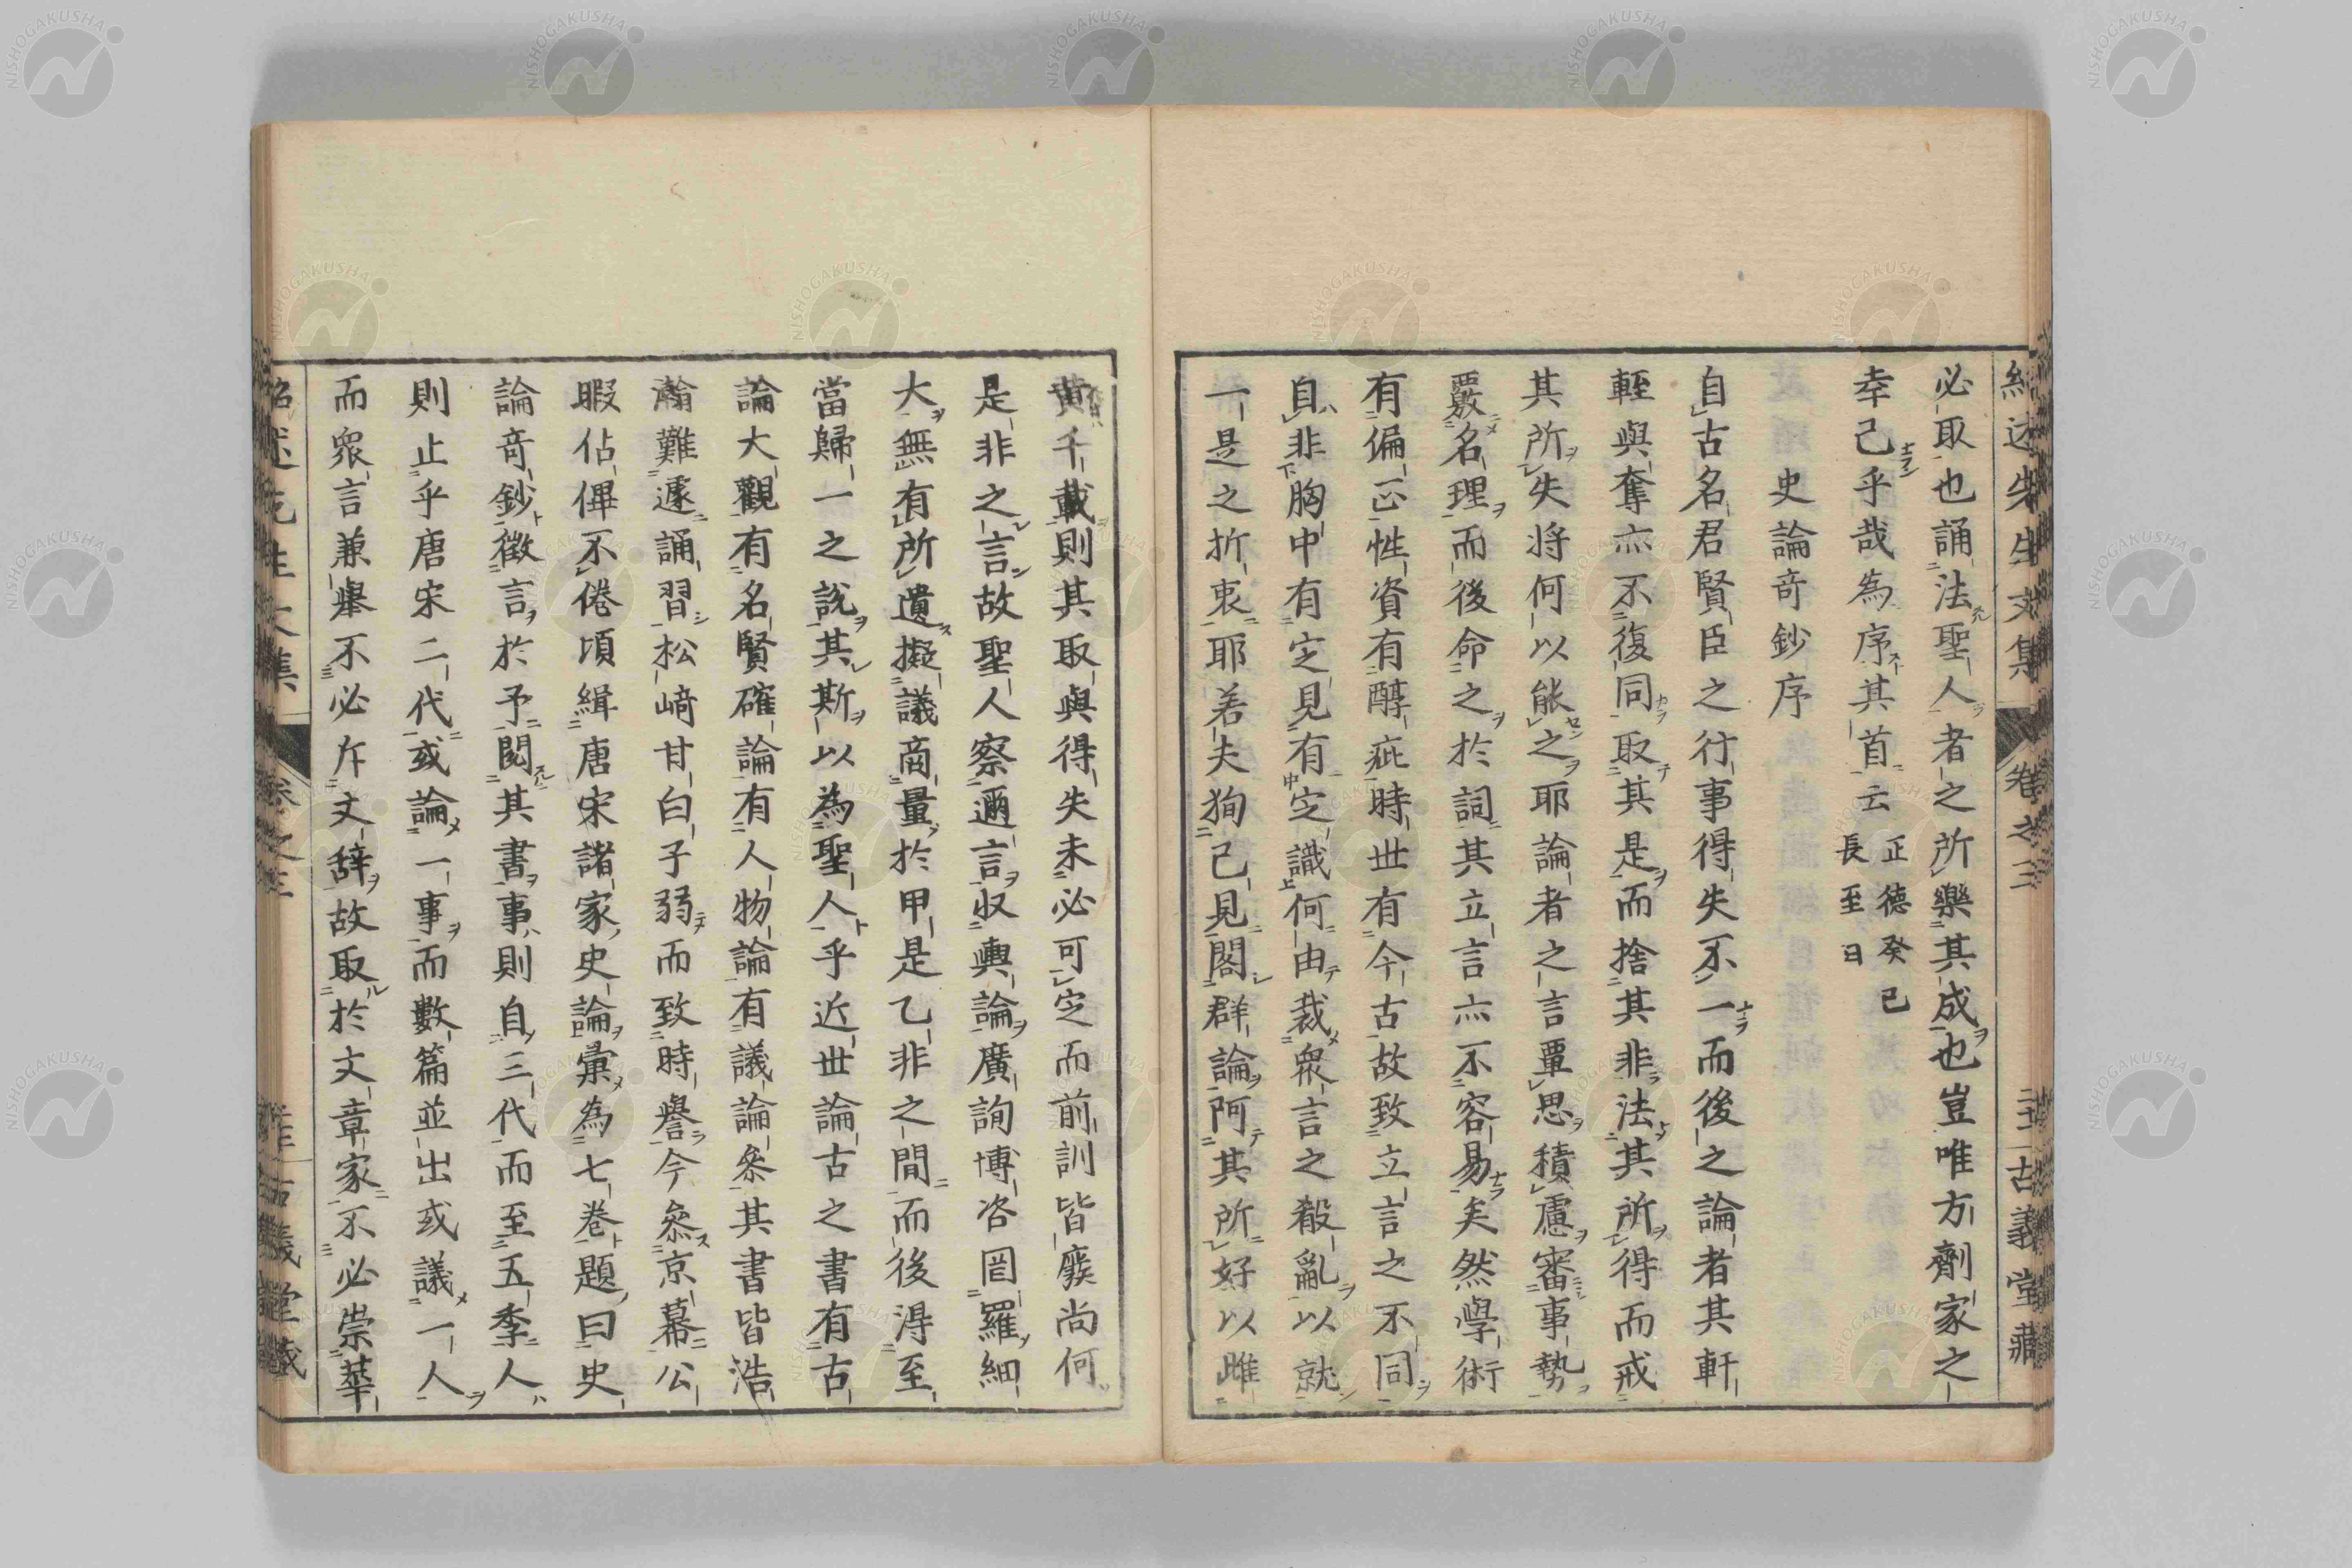 必取也誦法聖人者之所樂其成也豈唯方劑家之
幸己乎哉為序其首云 正德癸巳
長至日
史論奇鈔序
自古名君賢臣之行事得失不一而後之論者其軒
輊與奪亦不復同取其是而捨其非法其所得而戒
其所失將何以能之耶論者之言覃思積慮審事勢
覈名理而後命之於詞其立言亦不容易矣然學術
有偏正性資有醇疵時世有今古故致立言之不同
自非胸中有定見有定識何由裁衆言之殽亂以就
一是之折衷耶若夫狥己見閣群論阿其所好以雌
黄千載則其取與得失未必可定而前訓皆廢尚何
是非之言故聖人察邇言収輿論廣詢博咨罔羅細
大無有所遺擬議商量於甲是乙非之間而後淂至
當歸一之說其斯以為聖人乎近世論古之書有古
論大觀有名賢確論有人物論有議論叅其書皆浩
瀚難遽誦習松﨑甘白子弱而致時譽今叅京幕公
暇佔俾不倦頃緝唐宋諸家史論彙為七巻題曰史
論奇鈔徵言於予閱其書事則自三代而至五季人
則止乎唐宋二代或論一事而數篇並出或議一人
而衆言兼舉不必斥文辞故取於文章家不必崇華
紹述先生文集 卷之三 古義堂藏